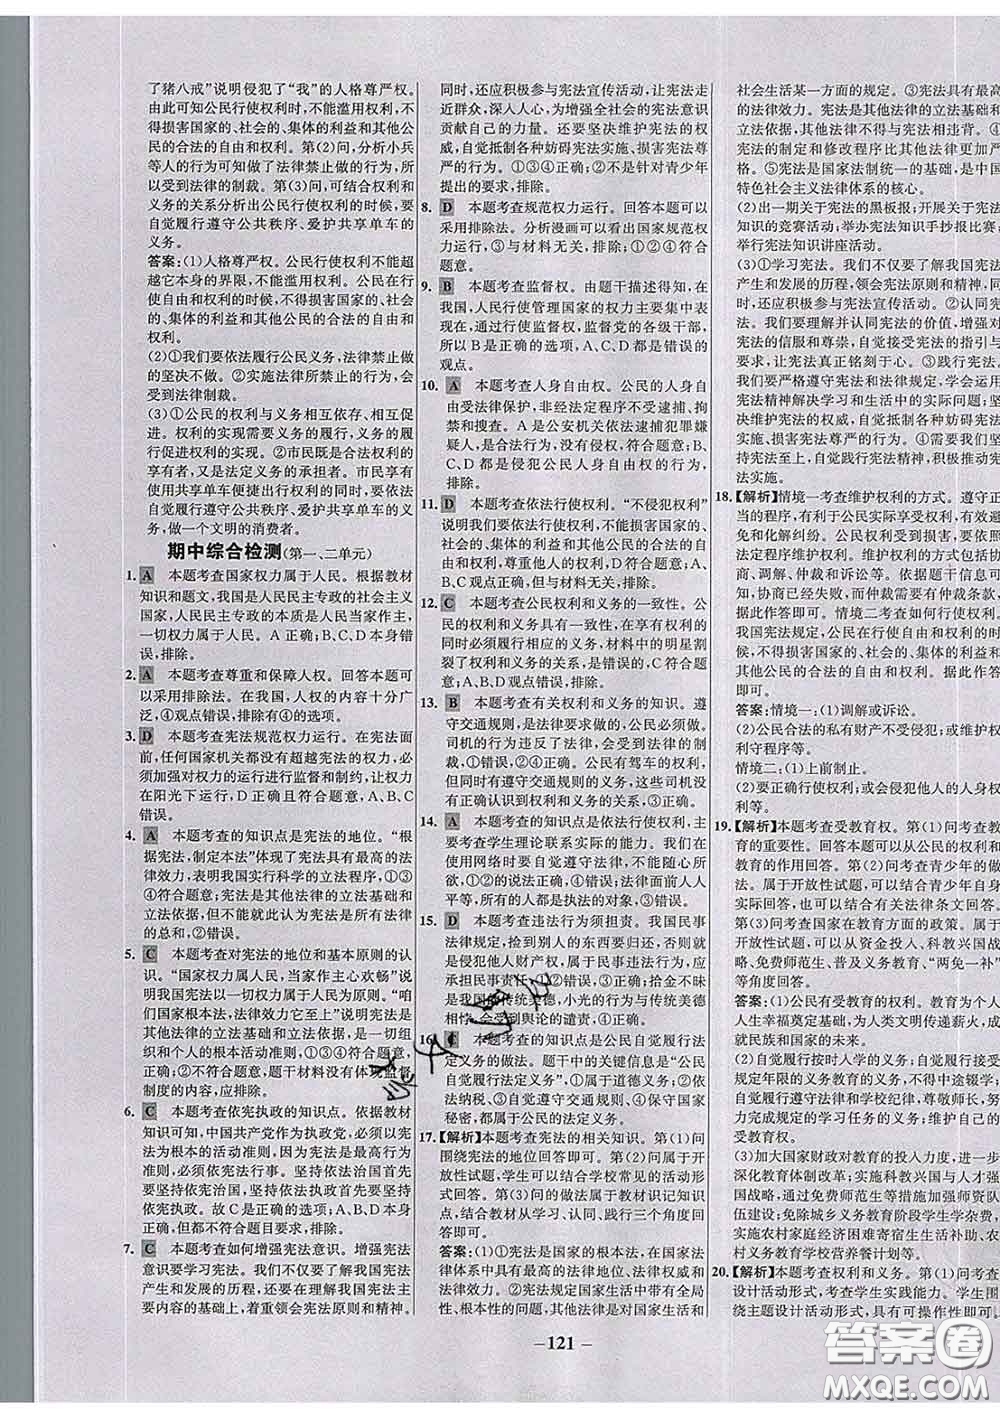 了猪八戒”说明侵犯了“我”的人格尊严权。
由此可知公民行使权利时,不能滥用权利,不
得损害国家的、社会的、集体的利益和其他公
民的合法的自由和权利。第(2)问,分析小兵
等人的行为可知做了法律禁止做的行为,所
以受到法律的制裁。第(3)问,可结合权利和
义务的关系分析出公民行使权利的时候,要
自觉履行遵守公共秩序、爱护共享单车的
义务。
答案:(1)人格尊严权。公民行使权利不能超
越它本身的界限,不能滥用权利。公民在行
使权利的时候,不得损害国家的、社会的、集
体的利益和其他公民的合法的自由和
权利。
(2)①我们要依法履行公民义务,法律禁止做
的坚决不做。②实施法律所禁止的行为,就
会受到法律制裁。
(3)①公民的权利与义务相互依存、相互促
进。权利的实现需要义务的履行,义务的履
行促进权利的实现。②市民既是合法权利的
享有者,又是法定义务的承担者。市民享有
使用共享单车便捷出行权利的同时,要依法
自觉履行遵守公共秩序、爱护共享单车的义
务,做一个文明的消费者。
期中综合检测(第一、二单元)
1. A 本题考查国家权力属于人民。根据教材
知识和题文,我国是人民民主专政的社会主义
国家,人民民主专政的本质是人民当家作主,
一切权力属于人民。A正确;B、C、D本身错
误,排除。
2. A 本题考查尊重和保障人权。回答本题可
以采用排除法。在我国,人权的内容十分广
泛,④观点错误,排除有④的选项。
3. D 本题考查宪法规范权力运行。在宪法面
前,任何国家机关都没有超越宪法的权力,必
须加强对权力的运行进行监督和制约,让权力
在阳光下运行,D正确且符合题意,A、B、C
错误。
4. A 本题考查的知识点是宪法的地位。“根
据宪法,制定本法”体现了宪法具有最高的法
律效力,表明我国实行科学的立法程序,①③
④符合题意;宪法是其他法律的立法基础和
立法依据,但不能就此认为宪法是所有法律
的总和,②错误,排除。
5. C 本题考查对宪法的地位和基本原则的认
识。“国家权力属人民,当家作主心欢畅”说明
我国宪法以一切权力属于人民为原则。“咱
们国家根本法,法律效力它至上”表明宪法是
其他法律的立法基础和立法依据,是一切组
织和个人的根本活动准则,①③④符合题意,
正确。②不符合题意,题干没有体现监督
制度的内容,应排除。
6. C 本题考查依宪执政的知识点。依据教材
知识可知,中国共产党作为执政党,必须以宪
法为根本的活动准则,因为宪法是国家的根本
法,必须依宪法行事。坚持依法治国首先要坚
持依宪治国,坚持依法执政首先要坚持依宪
执政。故C是正确的选项,A、B、D观点正
确,但都不符合题目要求,排除。
7. C 本题考查如何增强宪法意识。增强宪法
意识要学习宪法。我们不仅要了解我国宪法
产生和发展的历程,还要在理解宪法文本主
要内容的基础上,着重领会宪法原则和精神。
同时,还应积极参与宪法宣传活动,让宪法走
近群众,深入人心,为增强全社会的宪法意识
贡献自己的力量。还要坚决维护宪法的权
威,自觉抵制各种妨碍宪法实施、损害宪法
尊严的行为。①③④正确;②不是针对青少年
提出的要求,排除。
8. D 本题考查规范权力运行。回答本题可以
采用排除法。分析漫画可以看出国家规范权
力运行,③与材料无关,排除;①②④符合
题意。
9. B 本题考查监督权。由题干描述得知,在
我国,人民行使管理国家的权力主要集中表
现在,通过行使监督权,监督党的各级干部,
所以B是正确的选项,A、C、D都是错误的
观点。
10. A 本题考查人身自由权。公民的人身自
由受法律保护,非经法定程序不受逮捕、拘
禁和搜查。A是公安机关依法逮捕犯罪嫌
疑人,是合法行为,没有侵权,符合题意;B、
C、D都是侵犯公民人身自由权的行为,
排除。
11. D 本题考查依法行使权利。“不侵犯权利”
说明我们要依法行使权利,不能损害国家的、
社会的、集体的利益和其他公民的合法的自由
和权利,尊重他人的权利,D符合题意;A、B、
C观点正确,但与题干无关,排除。
12. C 本题考查公民权利和义务的一致性。公
民的权利和义务具有一致性,在享有权利的
同时必须履行相应的义务,材料中的明星割
裂了权利和义务的关系,是错误的,C符合题
意;A、B、D观点错误,排除。
13. B 本题考查有关权利和义务的知识。遵
守交通规则,是法律要求做的,公民必须做。
司机的行为违反了法律,会受到法律的制
裁,①②正确。公民有驾车的权利,
但同时有遵守交通规则的义务,这些司机没
有正确认识到权利和义务的关系,③正确。
14. A 本题考查的知识点是依法行使权利,主
要考查学生理论联系实际的能力。我们在
使用网络时要遵守法律,不能随心所欲,
①②的说法正确;法律面前人人
平等,所有的人都是执法的对象,③④错误,
排除。
15. D 本题考查违法行为须担责。我国民事
法律规定,捡到别人的东西要归还,否则就是
侵犯他人财产权,属于民事违法行为,应
承担民事责任,②错误,①正确;拾金不昧
是我国的传统美德,小光的行为与传统美德
相悖,会受到舆论的谴责,③④正确。
16. C 本题考查的知识点是公民自觉履行法
定义务的做法。题干中的关键信息是“公民
自觉履行法定义务”,①属于道德义务;②依
法纳税,③自觉遵守交通规则,④保守国家
秘密,都属于公民的法定义务。
17.【解析】本题考查宪法的相关知识。第(1)问
围绕宪法的地位回答即可;第(2)问属于开
放性试题,学生可以结合学校常见的活动形
式回答。第(3)问的做法属于教材识记知识
点,结合教材从学习、认同、践行三个角度回
答即可。
答案:(1)①宪法是国家的根本法,在国家法
律体系中具有最高的法律地位、法律权威和
法律效力。②宪法规定国家生活中带有全局
性、根本性的问题,其他法律是对国家生活和
社会生活某一方面的规定。③宪法具有最高
的法律效力。宪法是其他法律的立法基础和
立法依据,其他法律不得与宪法相违背。④
宪法的制定和修改程序比其他法律更加严
格。⑤宪法是国家法制统一的基础,是中国
特色社会主义法律体系的核心。
(2)出一期关于宪法的黑板报;开展关于宪法
知识的竞赛活动;举办宪法知识手抄报比赛;
举行宪法知识讲座活动。
(3)①学习宪法。我们不仅要了解我国宪法
产生和发展的历程,领会宪法原则和精神,同
时,还应积极参与宪法宣传活动。②认同宪
法。我们要理解并认同宪法的价值,增强对
宪法的信服和尊崇,自觉接受宪法的指引与
要求,让宪法真正铭刻于心。③践行宪法。
我们要严格遵守宪法和法律规定,学会运用
宪法精神解决生活中的实际问题;要坚
决维护宪法的权威,自觉抵制各种妨碍宪法
实施、损害宪法尊严的行为。④需要我们坚
持宪法至上,自觉践行宪法精神,积极推动宪
法实施。
18.【解析】情境一考查维护权利的方式。遵守正
当的程序,有利于公民实际享有权利,有利于避
免和化解纠纷。公民维护权利的方式包括协
商、调解、仲裁和诉讼等。依据题干信息可
知,协商已经失败,也没有达成仲裁条款,
据此作答即可。情境二考查如何行使权利
我国宪法规定,公民在行使自由和权利的时
候,不得损害国家的、社会的、集体的利益和
其他公民的合法的自由和权利。据此作答
即可。
答案:情境一:(1)调解或诉讼。
(2)公民合法的私有财产不受侵犯;公民行使
权利守程序等。
情境二:(1)上前制止。
(2)要正确行使权利,不能侵犯他人的人身权
利等。
19.【解析】本题考查受教育权。第(1)问考查教
育的重要性。回答本题可以从公民的权利和
教育的作用回答。第(2)问考查青少年的做
法。属于开放性试题,可以结合青少年自身
实际回答,也可以结合有关法律条文回答。
第(3)问考查国家在教育方面的政策。属于
开放性试题,可以从资金投入、科教兴国战
略、免费师范生、普及义务教育、“两免一补”
等角度回答。
答案:(1)公民有受教育的权利。教育为个
人生奠定基础,为文明传递薪火,成
就民族和国家的未来。
(2)自觉履行按时入学的义务;自觉接受
规定年限的义务教育的义务,不得中途辍学;
自觉遵守法律和学校纪律,尊敬师长,努
力完成规定的学习任务的义务;维护自己的
受教育权。
(3)加大国家财政对教育的投入力度,进一步
深化教育体制改革;实施科教兴国与人才强
国战略,通过免费师范生等措施加强师资队
伍建设;免除城乡义务教育阶段学生学杂费,
实施农村家庭经济困难寄宿生生活补助、农
村义务教育学校营养餐计划等。
20.【解析】本题考查权利和义务。第(1)问考查
设计活动形式,考查学生实践能力。学生围
绕主题设计活动形式,具有可操作性即可。
— 121 —
答案圈
MXQE.COM